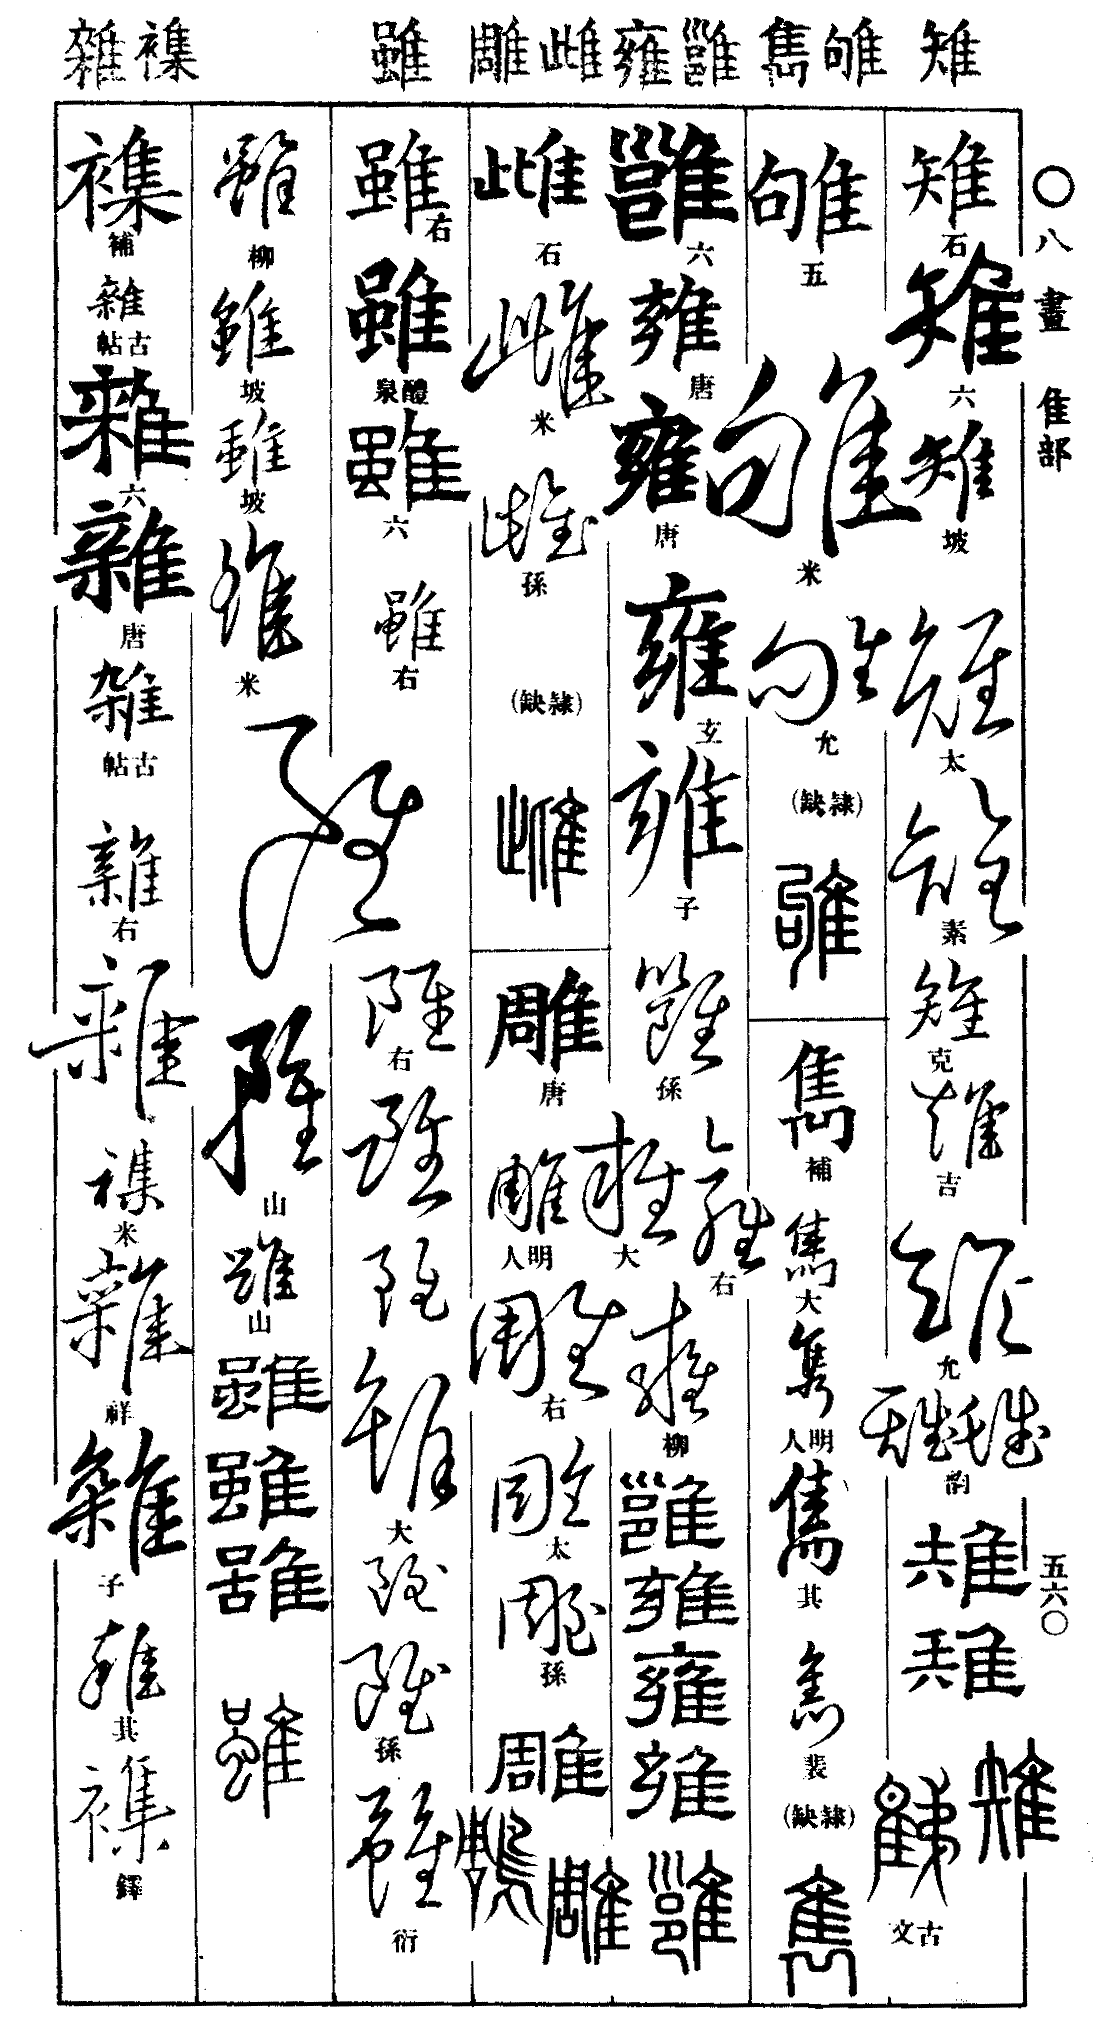 雉 雊 雋 雝 雍 雌 雕 雖 襍 雜
○八畫 隹部 五六〇
雉 石
雉 六
雉 坡
雉 太
雉 素
雉 克
雉 吉
雉 允
雉 雉 韵
雉
雉
雉
雉 古文
雊 五
雊 米
雊 允
(隸缺)
雊
雋 補
雋 大
雋 明人
雋 其
雋 裴
(隸缺)
雋
雝 六
雍 唐
雍 唐
雍 玄
雍 子
雝 孫
雍 右
雍 大
雍 柳
雝
雍
雍
雍
雝
雌 石
雌 米
雌 孫
(隸缺)
雌
雕 唐
雕 明人
雕 右
雕 太
雕 孫
雕
雕
雖 右
雖 醴泉
雖 六
雖 右
雖 右
雖
雖
雖 大
雖
雖 孫
雖 衍
雖 柳
雖 坡
雖 坡
雖 米
雖
雖 山
雖 山
雖
雖
雖
雖
襍 補
雜 古帖
雜 六
雜 唐
雜 古帖
雜 右
雜
襍 米
雜 祥
雜 子
雜 其
襍 鐸